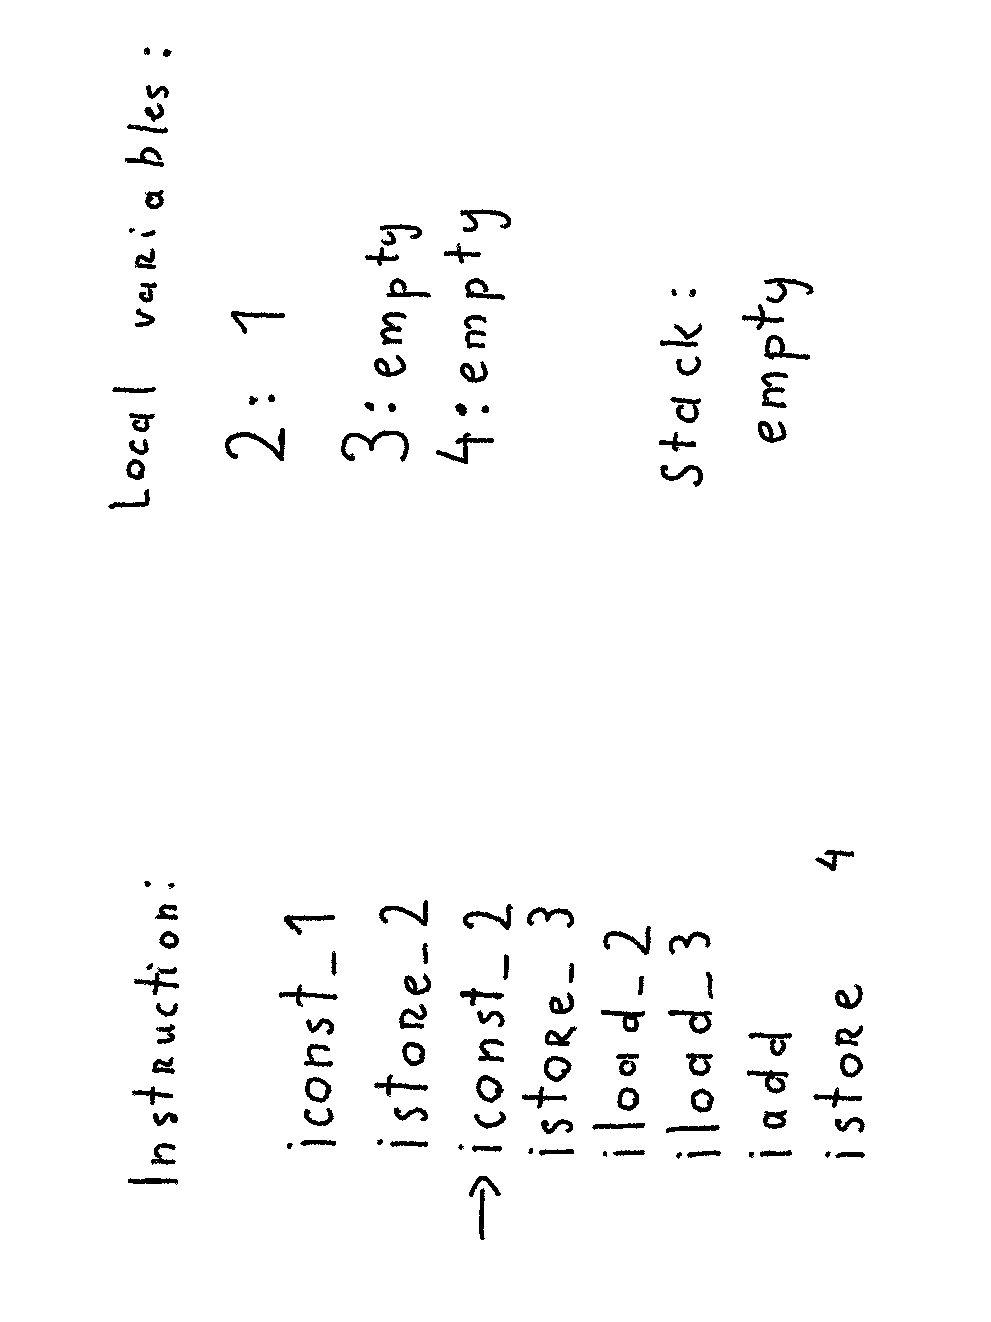 Instruction:
iconst_1
istore_2
→iconst_2
istore_3
iload_2
iload_3
iadd
istore 4
Local variables:
2: 1
3: empty
4: empty
Stack:
empty